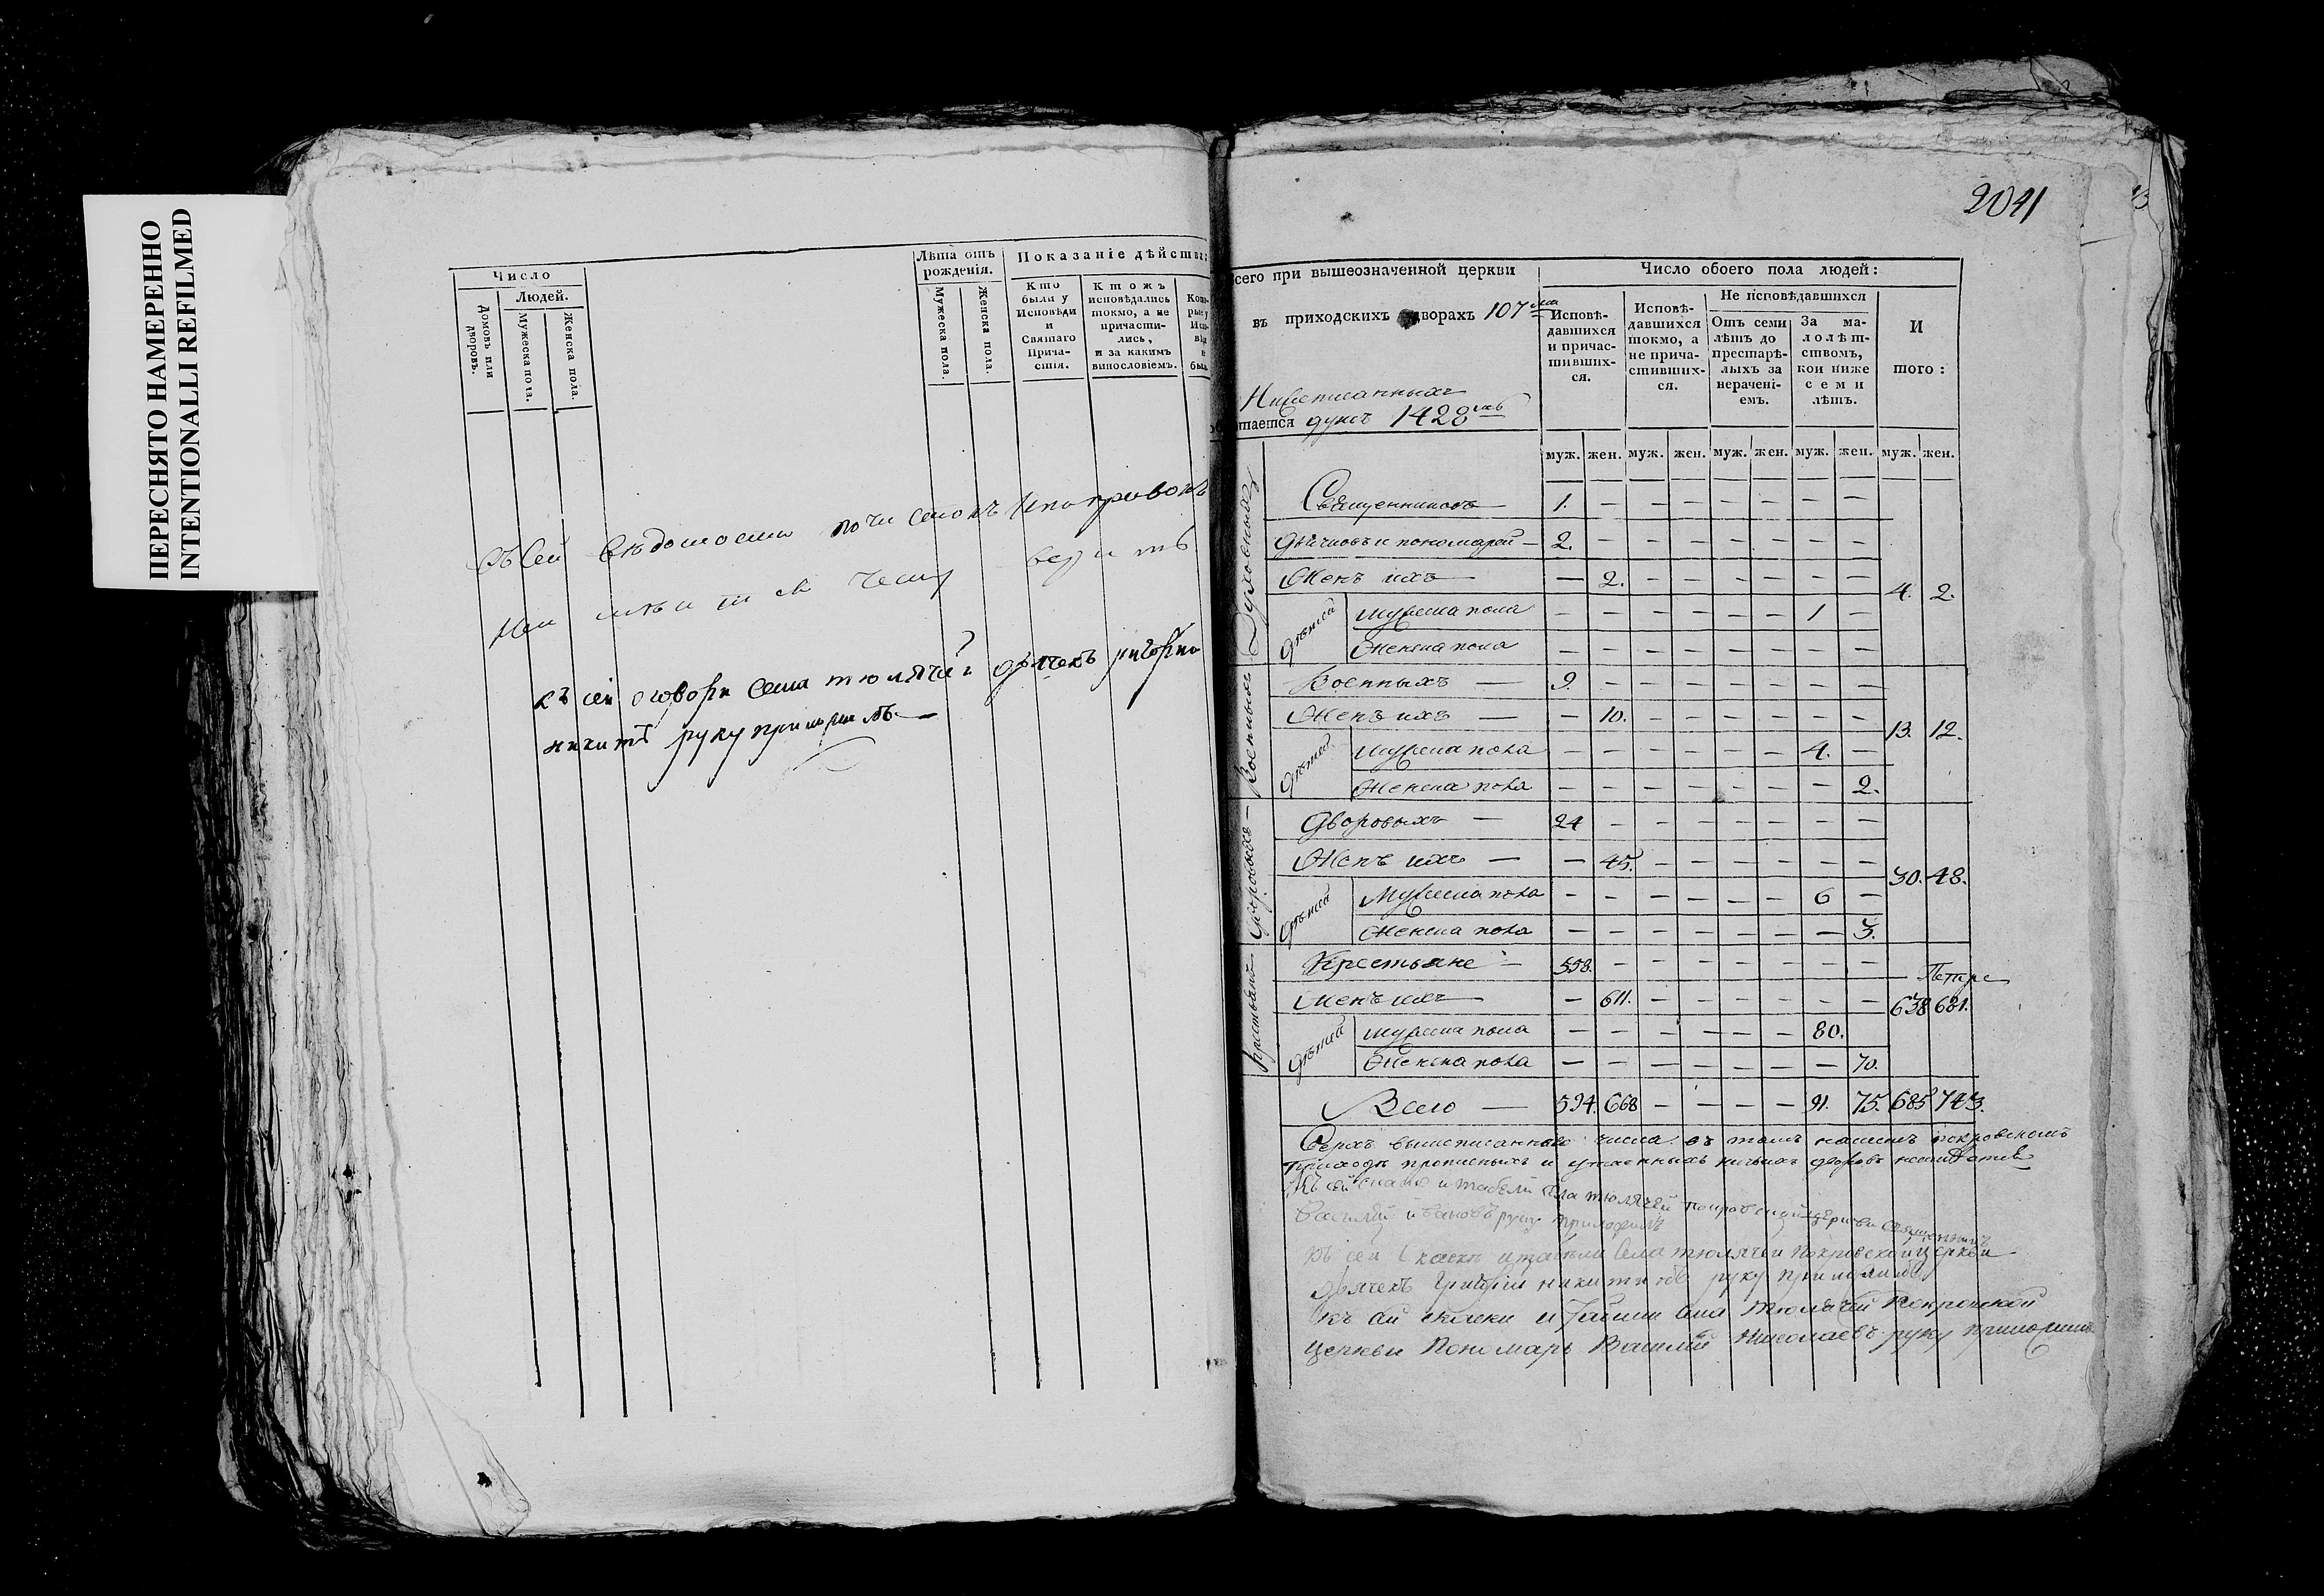 ПЕРЕСНЯТО НАМЕРЕННО
INTENTIONALLI REFILMED
Число
Людей.
Домовъ или дворовъ.
Мужеска пола.
Женска пола.
Лѣта отъ рожденія.
Мужеска пола.
Женска пола.
Показаніе дѣйства
Кто были у Исповѣди и Святаго Прича-стія.
Ктожъ исповѣдались токмо, а не причасти-лись, и за какимъ винословіемъ.
Въ сей вѣдомости
къ сей оговорки села тюлячей дьячекъ григорей
никитѣ руку приложилъ
2041
сего при вышеозначенной церкви
въ приходскихъ дворахъ 107
Нижеписанныхъ
тается душъ 1428
Число обоего пола людей:
Исповѣ-давшихся и причас-тивших-ся.
Исповѣ-давшихся токмо, а не прича-стивших-ся.
Не исповѣдавшихся
Отъ семи лѣтъ до престарѣ-лыхъ за нерачені-емъ.
За ма-лолѣт-ствомъ, кои ниже семи лѣтъ.
И того:
муж. жен. муж. жен. муж. жен. муж. жен. муж. жен.
Духовныхъ
Священниковъ 1. — — — — — — —
Дьячковъ и пономарей 2. — — — — — — —
Женъ ихъ — 2. — — — — — — 4. 2.
Дѣтей
Мужеска пола — — — — — — 1 —
Женска пола — — — — — — — —
Военныхъ
Военныхъ 9. — — — — — — —
Женъ ихъ — 10. — — — — — — 13. 12.
Дѣтей
Мужеска пола — — — — — — 4. —
Женска пола — — — — — — — 2.
Дворовыхъ
Дворовыхъ 24 — — — — — — —
Женъ ихъ — 45. — — — — — — 30. 48.
Дѣтей
Мужеска пола — — — — — — 6 —
Женска пола — — — — — — — 3.
Крестьянъ
Крестьяне 558. — — — — — — —
Женъ ихъ — 611. — — — — — — 638 681.
Дѣтей
Мужеска пола — — — — — — 80. —
Женска пола — — — — — — — 70.
Всего 594. 668 — — — — 91. 75. 685 743.
Сверхъ вышеписаннаго числа въ томъ нашемъ покровскомъ
Приходѣ прописныхъ и утаенныхъ ничьихъ дворовъ
Къ сей скаски и табели села тюлячей покровской церкви священникъ
Василей ивановъ руку приложилъ
къ сей скаскѣ и табели села тюлячей покровской церкви
дьячекъ григорей никитинъ руку приложилъ
къ сей скаски и табели села Тюлячей Покровской
церкви Пономарь Василей Николаевъ руку приложилъ